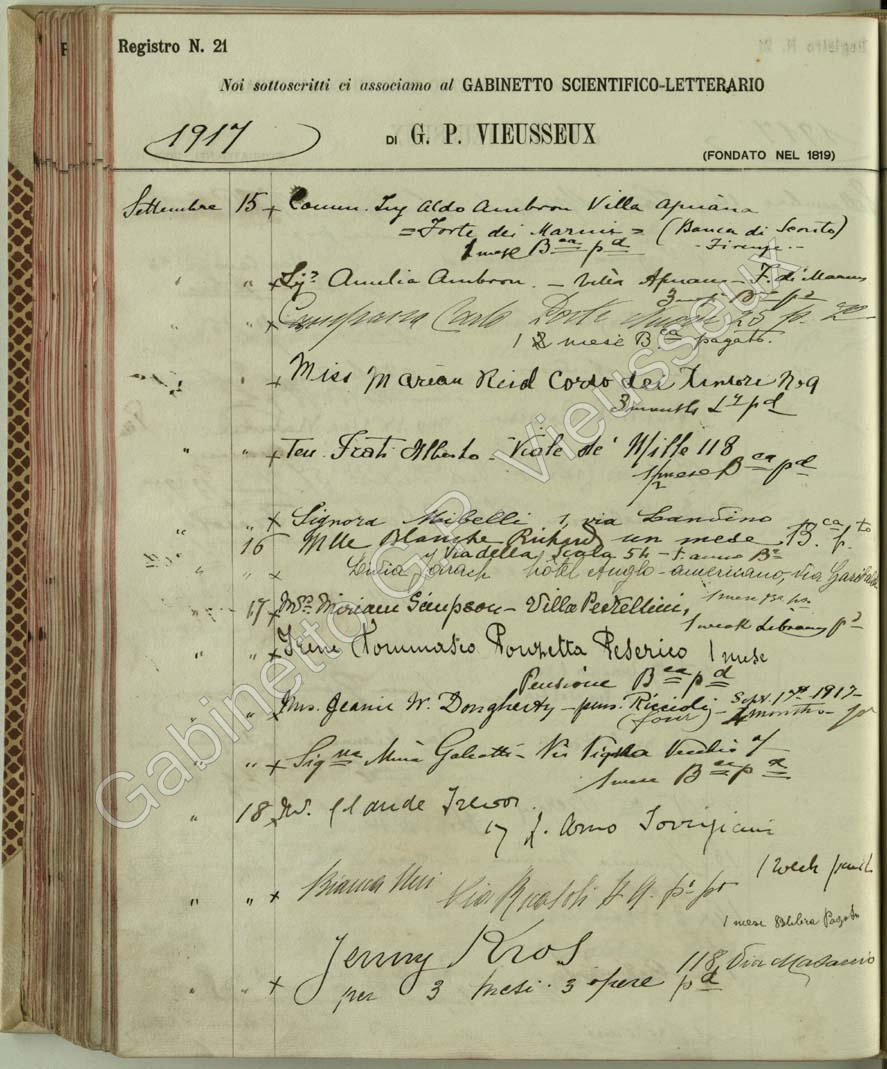 Registro N. 21
Noi sottoscritti ci associamo al GABINETTO SCIENTIFICO-LETTERARIO
1917
DI G. P. VIEUSSEUX
(FONDATO NEL 1819)
Settembre 15 x Comm. Ing Aldo Ambron Villa Apuana
= Forte dei Marmi = (Banca di Sconto)
1 mese Bca pd Firenze.-
" x Sig.a Amelia Ambron. - Villa Apuana - F. dei Marmi
3 Bca pd
" x Carlo 25 p. 2o
1 mese Bca pagato.
" x Miss Marian Reid Corso dei Tintori No 9
3 months pd
" " x Ten. Frati Alberto - Viale de' Mille 118
1/2 mese Bca pd
" " x Signora Mibelli 1, via Landino
16 Mlle Blanche Richard un mese Bca pto
" via della Scala 54 - 1 anno Ba
" " x hôtel Anglo-americano, via Garibaldi
1 mese Ba pa
" 17 x Mrs Miriam Simpson - Villa
1 week Library pd
" " x Irene Tommasio Peserico 1 mese
Pensione Bca pd
" " x Mrs. Jeanie W. Dougherty - pens. Riccioli - Sept. 17th 1917 -
(four) 4 months - pd
" " x Signa Galeotti - Via Vigna Vecchia 7
1 mese Bca pd
" 18 x Mr. Claude Trevor.
17 L. Arno Torrigiani
1 week
" " x Bianca Via 4 p.o po
1 mese Pagato
Jenny Kros 118 Via Masaccio
" " x per 3 mesi. 3 opere pd
Gabinetto G.P. Vieusseux